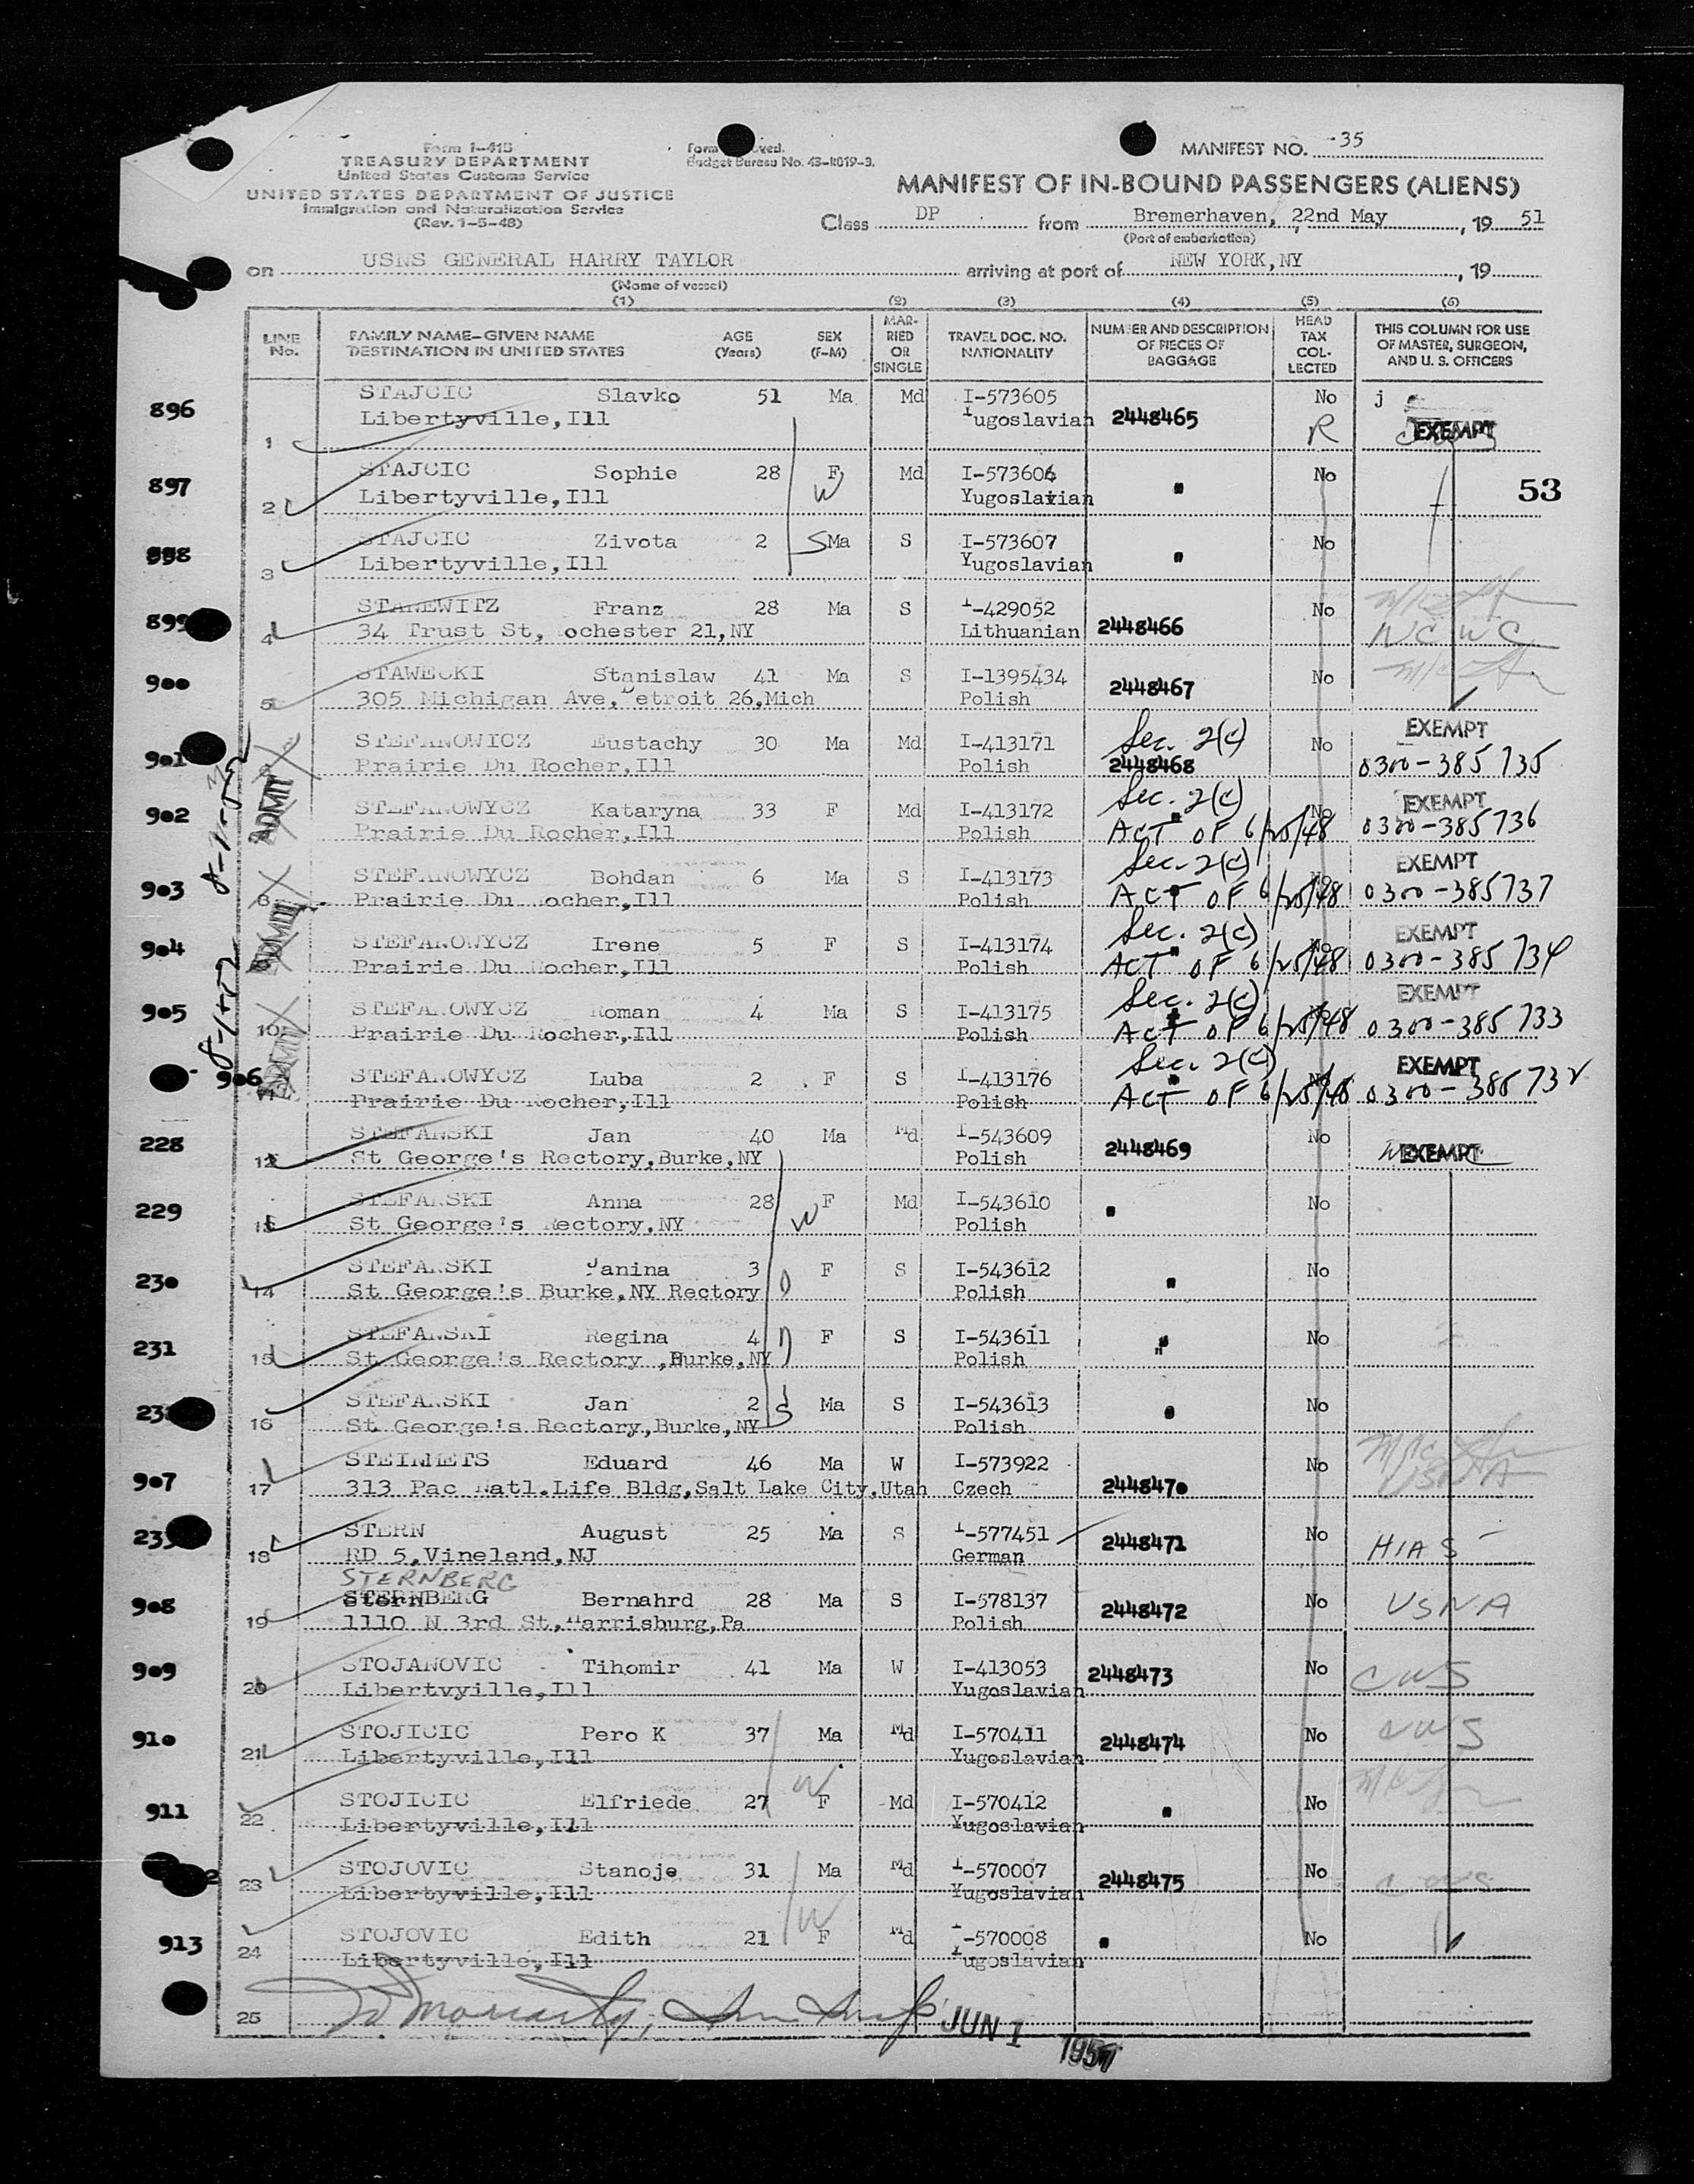 Form I-415
TREASURY DEPARTMENT
United States Customs Service
UNITED STATES DEPARTMENT OF JUSTICE
Immigration and Naturalization Service
(Rev. 1-5-48)
Budget Bureau No. 43-R019-3.
MANIFEST NO. -35
MANIFEST OF IN-BOUND PASSENGERS (ALIENS)
Class DP from Bremerhaven, 22nd May, 19 51
(Port of embarkation)
on USNS GENERAL HARRY TAYLOR arriving at port of NEW YORK, NY, 19
(Name of vessel)
(1) (2) (3) (4) (5) (6)
LINE No. FAMILY NAME—GIVEN NAME DESTINATION IN UNITED STATES AGE (Years) SEX (F-M) MARRIED OR SINGLE TRAVEL DOC. NO. NATIONALITY NUMBER AND DESCRIPTION OF PIECES OF BAGGAGE HEAD TAX COLLECTED THIS COLUMN FOR USE OF MASTER, SURGEON, AND U. S. OFFICERS
896 STAJCIC Slavko 51 Ma Md I-573605 No j
1 Libertyville, Ill ugoslavian 2448465 R EXEMPT
897 STAJCIC Sophie 28 F Md I-573606 No
2 Libertyville, Ill W Yugoslavian " 53
898 STAJCIC Zivota 2 S Ma S I-573607 No
3 Libertyville, Ill Yugoslavian "
899 STANEWITZ Franz 28 Ma S I-429052 No
4 34 Trust St, ochester 21, NY Lithuanian 2448466 NCWC
900 STAWECKI Stanislaw 41 Ma S I-1395434 No
5 305 Michigan Ave, Detroit 26, Mich Polish 2448467
901 STEFANOWICZ Eustachy 30 Ma Md I-413171 Sec. 2(c) No EXEMPT
ADMIT Prairie Du Rocher, Ill Polish 2448468 0300-385735
902 STEFANOWYCZ Kataryna 33 F Md I-413172 Sec. 2(c) No EXEMPT
Prairie Du Rocher, Ill Polish ACT OF 6/25/48 0300-385736
903 STEFANOWYCZ Bohdan 6 Ma S I-413173 Sec. 2(c) No EXEMPT
8 Prairie Du ocher, Ill Polish ACT OF 6/25/48 0300-385737
904 STEFANOWYCZ Irene 5 F S I-413174 Sec. 2(c) No EXEMPT
ADMIT Prairie Du Rocher, Ill Polish ACT OF 6/25/48 0300-385734
905 STEFANOWYCZ Roman 4 Ma S I-413175 Sec. 2(c) No EXEMPT
10 Prairie Du Rocher, Ill Polish ACT OF 6/25/48 0300-385733
906 STEFANOWYCZ Luba 2 F S I-413176 Sec. 2(c) No EXEMPT
11 ADMIT Prairie Du Rocher, Ill Polish ACT OF 6/25/48 0300-385732
228 STEFANSKI Jan 40 Ma Md I-543609 No
12 St George's Rectory, Burke, NY Polish 2448469 EXEMPT
229 STEFANSKI Anna 28 F Md I-543610 No
13 St George's Rectory, NY W Polish "
230 STEFANSKI Janina 3 F S I-543612 No
14 St George's Burke, NY Rectory D Polish "
231 STEFANSKI Regina 4 D F S I-543611 No
15 St George's Rectory ,Burke, NY Polish "
STEFANSKI Jan 2 S Ma S I-543613 No
16 St George's Rectory, Burke, NY Polish "
907 STEINMETS Eduard 46 Ma W I-573922 No
17 313 Pac Natl. Life Bldg, Salt Lake City, Utah Czech 2448470 USNA
STERN August 25 Ma S I-577451 No
18 RD 5, Vineland, NJ German 2448471 HIAS
STERNBERG
908 STERNBERG Bernahrd 28 Ma S I-578137 No USNA
19 1110 N 3rd St, Harrisburg, Pa Polish 2448472
909 STOJANOVIC Tihomir 41 Ma W I-413053 No
20 Libertvyille, Ill Yugoslavian 2448473 CWS
910 STOJICIC Pero K 37 Ma Md I-570411 No CWS
21 Libertyville, Ill Yugoslavian 2448474
911 STOJICIC Elfriede 27 W F Md I-570412 No
22 Libertyville, Ill Yugoslavian "
2 STOJOVIC Stanoje 31 Ma Md I-570007 No
23 Libertyville, Ill Yugoslavian 2448475 CWS
913 STOJOVIC Edith 21 W F Md I-570008 No
24 Libertyville, Ill ugoslavian "
25 Moriarty, JUN 1 1951